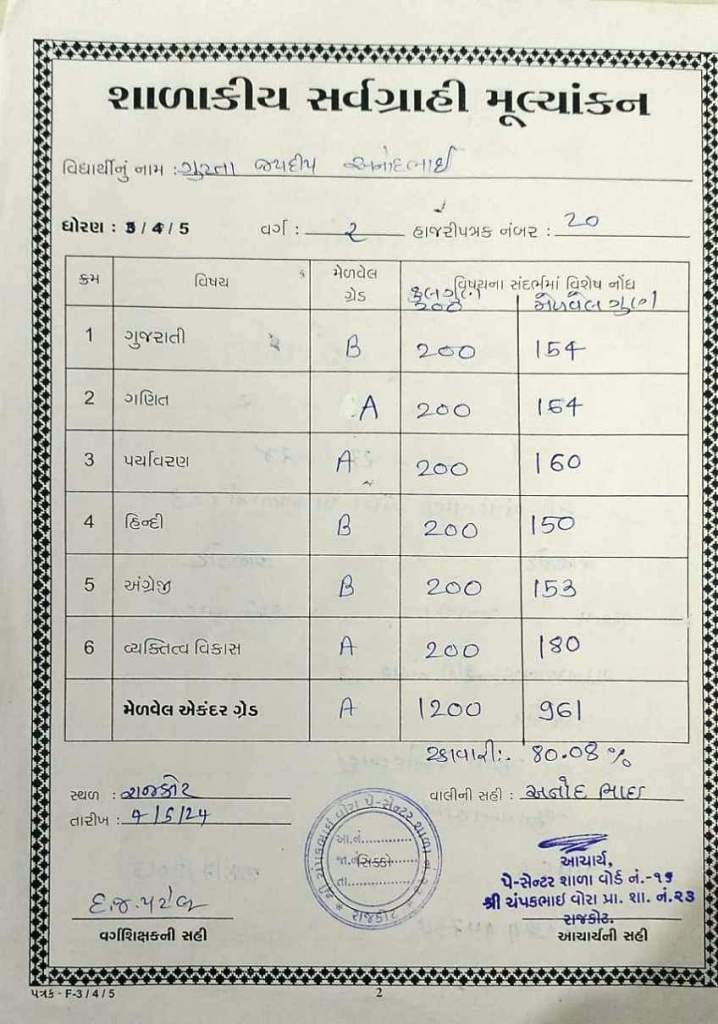 શાળાકીય સર્વગ્રાહી મૂલ્યાંકન
વિદ્યાર્થીનું નામ : ગુસ્તા જયદીપ અનોદભાઈ
ધોરણ : 3 / 4 / 5 વર્ગ : ૨ હાજરીપત્રક નંબર : 20
ક્રમ વિષય મેળવેલ ગ્રેડ વિષયના સંદર્ભમાં વિશેષ નોંધ
કુલગુણ 200 મેળવેલ ગુણ
1 ગુજરાતી B 200 154
2 ગણિત A 200 164
3 પર્યાવરણ A 200 160
4 હિન્દી B 200 150
5 અંગ્રેજી B 200 153
6 વ્યક્તિત્વ વિકાસ A 200 180
મેળવેલ એકંદર ગ્રેડ A 1200 961
ટકાવારી:- 80.08 %
સ્થળ : રાજકોટ વાલીની સહી : અનોદ ભાઈ
તારીખ : 7/5/24
શ્રી ચંપકભાઈ વોરા પે-સેન્ટર શાળા નં. ૨૩
આ.નં.
જા.નં. સિક્કો
તા.
રાજકોટ
આચાર્ય,
પે-સેન્ટર શાળા વોર્ડ નં.-૧૬
શ્રી ચંપકભાઈ વોરા પ્રા. શા. નં.૨૩
રાજકોટ.
દ.જ.પટેલ
વર્ગશિક્ષકની સહી આચાર્યની સહી
પત્રક - F-3 / 4 / 5 2